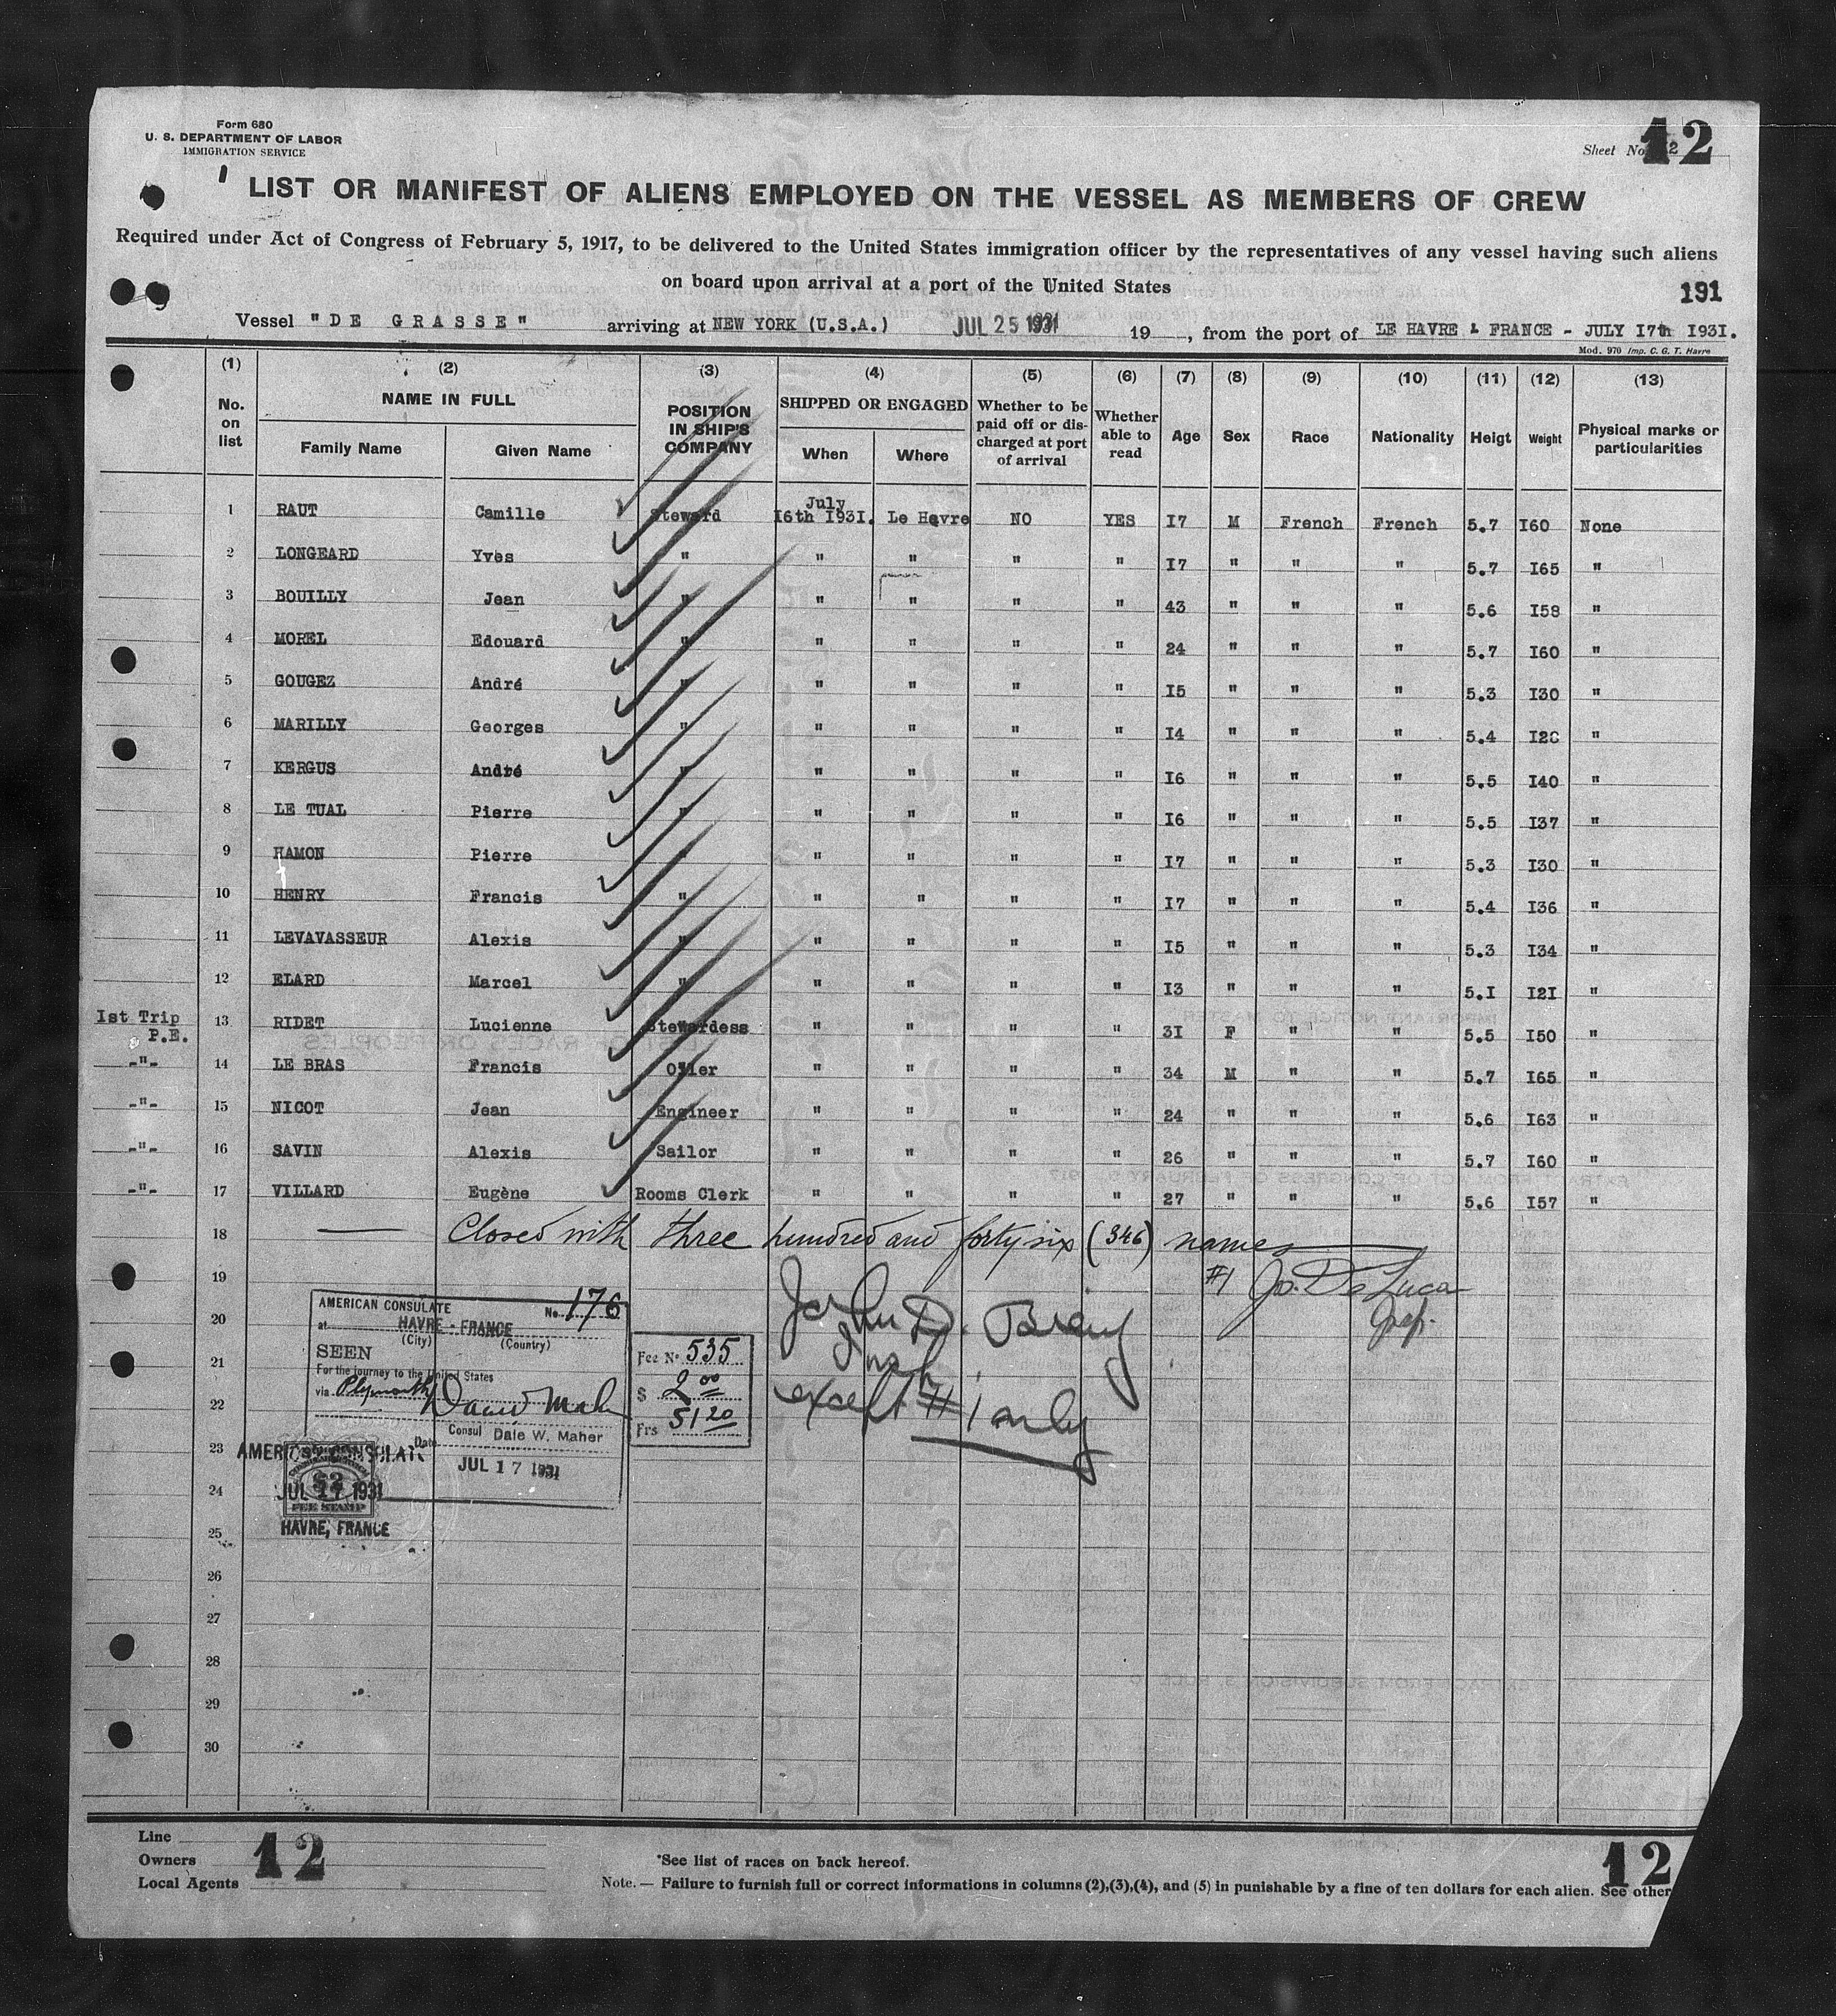 Form 680
U. S. DEPARTMENT OF LABOR
IMMIGRATION SERVICE
Sheet No. 12
LIST OR MANIFEST OF ALIENS EMPLOYED ON THE VESSEL AS MEMBERS OF CREW
Required under Act of Congress of February 5, 1917, to be delivered to the United States immigration officer by the representatives of any vessel having such aliens
on board upon arrival at a port of the United States
191
Vessel "DE GRASSE" arriving at NEW YORK (U.S.A.) JUL 25 1931 19 , from the port of LE HAVRE & FRANCE - JULY I7th I93I.
Mod. 970 Imp. C. G. T. Havre
(1) (2) (3) (4) (5) (6) (7) (8) (9) (10) (11) (12) (13)
No. on list NAME IN FULL Family Name Given Name POSITION IN SHIP'S COMPANY SHIPPED OR ENGAGED When Where Whether to be paid off or discharged at port of arrival Whether able to read Age Sex Race Nationality Heigt Weight Physical marks or particularities
1 RAUT Camille Steward July I6th I93I. Le Havre NO YES I7 M French French 5.7 I60 None
2 LONGEARD Yves " " " " " I7 " " " 5.7 I65 "
3 BOUILLY Jean " " " " " 43 " " " 5.6 I58 "
4 MOREL Edouard " " " " " 24 " " " 5.7 I60 "
5 GOUGEZ André " " " " " I5 " " " 5.3 I30 "
6 MARILLY Georges " " " " " I4 " " " 5.4 "
7 KERGUS André " " " " " I6 " " " 5.5 I40 "
8 LE TUAL Pierre " " " " " I6 " " " 5.5 I37 "
9 HAMON Pierre " " " " " I7 " " " 5.3 I30 "
10 HENRY Francis " " " " " I7 " " " 5.4 I36 "
11 LEVAVASSEUR Alexis " " " " " I5 " " " 5.3 I34 "
12 ELARD Marcel " " " " " I3 " " " 5.I I2I "
Ist Trip P.E. 13 RIDET Lucienne Stewardess " " " " 3I F " " 5.5 I50 "
-"- 14 LE BRAS Francis Oiler " " " " 34 M " " 5.7 I65 "
-"- 15 NICOT Jean Engineer " " " " 24 " " " 5.6 I63 "
-"- 16 SAVIN Alexis Sailor " " " " 26 " " " 5.7 I60 "
-"- 17 VILLARD Eugène Rooms Clerk " " " " 27 " " " 5.6 I57 "
18 Closed with three hundred and forty six (346) names
19 #1 Jo. De Luca
20 John D.
21 Insp.
22 except #1 only
23
24
25
26
27
28
29
30
AMERICAN CONSULATE No. 176
at HAVRE - FRANCE
(City) (Country)
SEEN
For the journey to the United States
via Plymouth
Consul Dale W. Maher
Date JUL 17 1931
Fee No 535
$ 2 00
Frs 51 20
AMERICAN CONSULATE
$2
JUL 17 1931
FEE STAMP
HAVRE, FRANCE
Line
Owners
Local Agents
12
12
*See list of races on back hereof.
Note. — Failure to furnish full or correct informations in columns (2),(3),(4), and (5) in punishable by a fine of ten dollars for each alien. See other